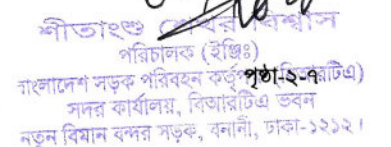 শীতাংশু শেখর বিশ্বাস
পরিচালক (ইঞ্জিঃ)
বাংলাদেশ সড়ক পরিবহন কর্তৃপৃষ্ঠা-২-৭বিআরটিএ)
সদর কার্যালয়, বিআরটিএ ভবন
নতুন বিমান বন্দর সড়ক, বনানী, ঢাকা-১২১২।